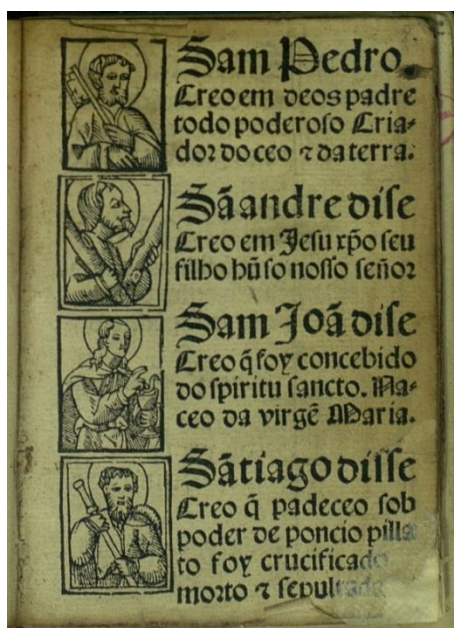 Sam Pedro.
Creo em deos padre
todo poderoſo Cria⸗
dor do ceo ⁊ da terra.
Sã andre diſe
Creo em Jeſu xp̃o ſeu
filho hũ ſo noſſo señor
Sam Joã diſe
Creo q̃ foy concebido
do ſpiritu ſancto. Na⸗
ceo da virgẽ Maria.
Sãtiago diſſe
Creo q̃ padeceo ſob
poder de poncio pilla
to foy crucificado
morto ⁊ ſepultado